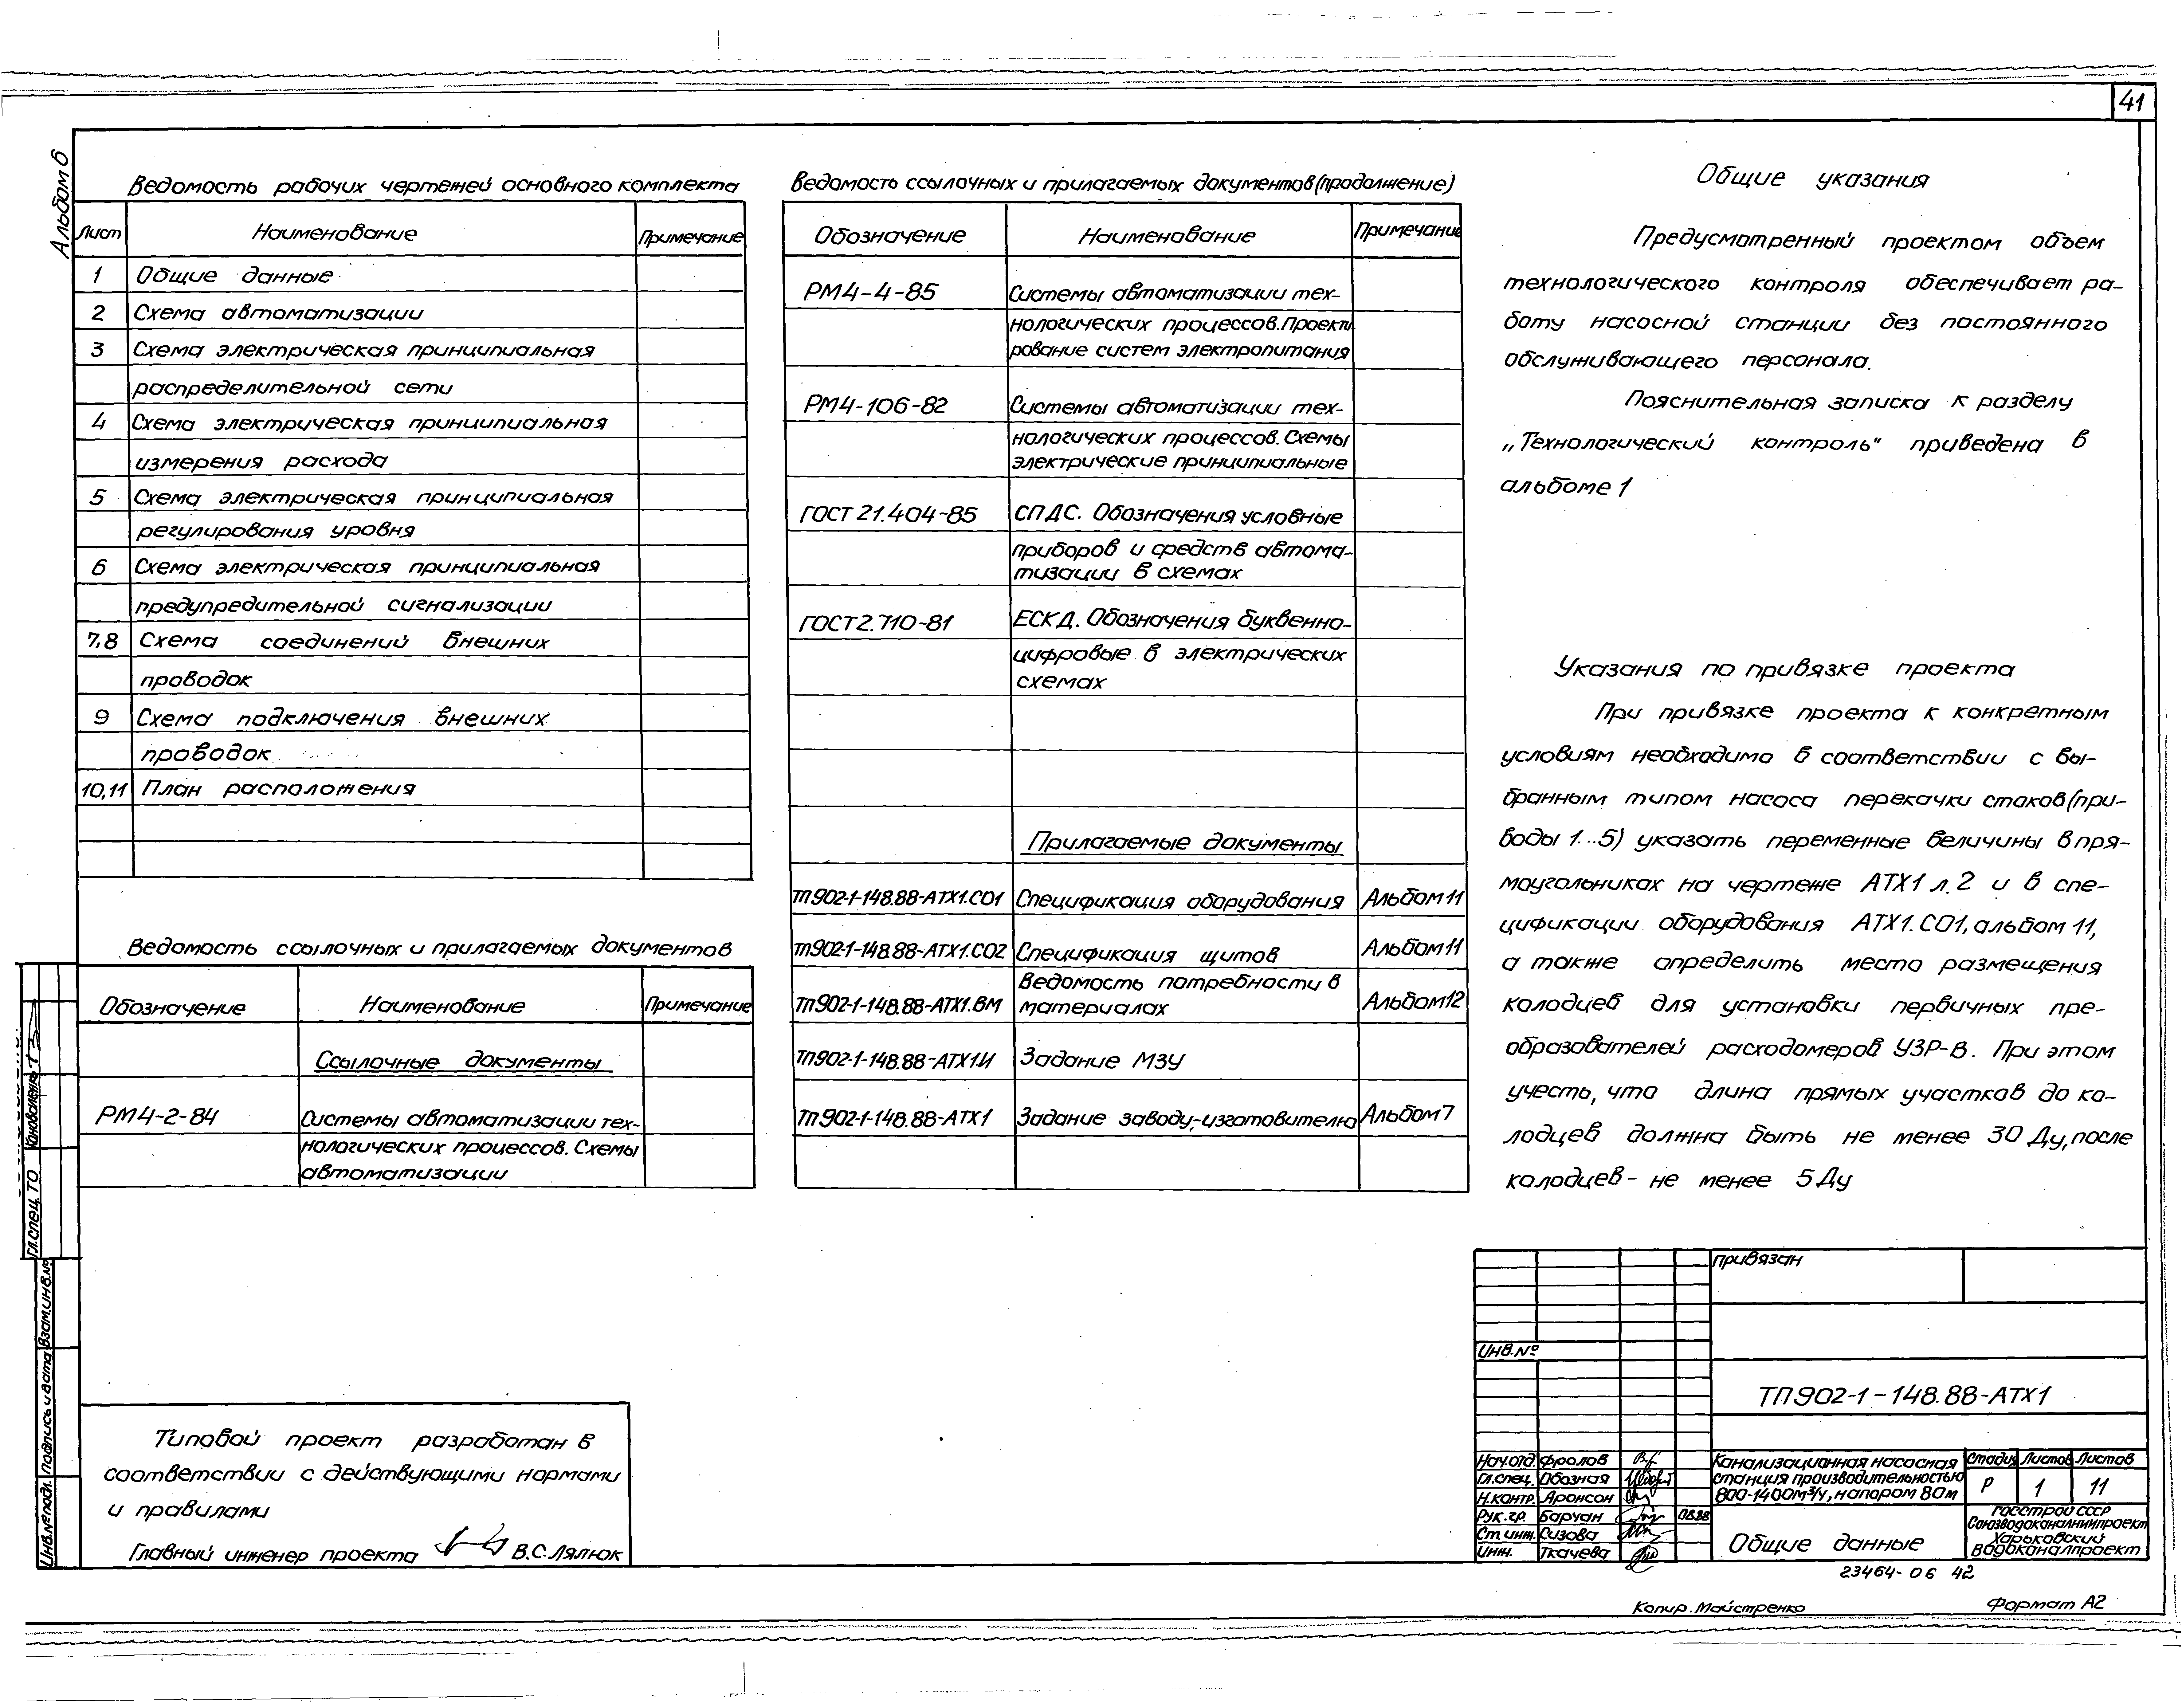 41
Альбом 6
Ведомость рабочих чертежей основного комплекта
Лист Наименование Примечание
1 Общие данные
2 Схема автоматизации
3 Схема электрическая принципиальная
распределительной сети
4 Схема электрическая принципиальная
измерения расхода
5 Схема электрическая принципиальная
регулирования уровня
6 Схема электрическая принципиальная
предупредительной сигнализации
7,8 Схема соединений внешних
проводок
9 Схема подключения внешних
проводок
10,11 План расположения
Ведомость ссылочных и прилагаемых документов
Обозначение Наименование Примечание
Ссылочные документы
РМ4-2-84 Системы автоматизации тех-
нологических процессов. Схемы
автоматизации
Ведомость ссылочных и прилагаемых документов (продолжение)
Обозначение Наименование Примечание
РМ4-4-85 Системы автоматизации тех-
нологических процессов. Проекти
рование систем электропитания
РМ4-106-82 Системы автоматизации тех-
нологических процессов. Схемы
электрические принципиальные
ГОСТ 21.404-85 СПДС. Обозначения условные
приборов и средств автома-
тизации в схемах
ГОСТ 2.710-81 ЕСКД. Обозначения буквенно-
цифровые в электрических
схемах
Прилагаемые документы
ТП902-1-148.88-АТХ1.СО1 Спецификация оборудования Альбом 11
ТП902-1-148.88-АТХ1.СО2 Спецификация щитов Альбом 11
Ведомость потребности в
ТП902-1-148.88-АТХ1.ВМ материалах Альбом 12
ТП902-1-148.88-АТХ1.И Задание МЗУ
ТП902-1-148.88-АТХ1 Задание заводу-изготовителю Альбом 7
Общие указания
Предусмотренный проектом объем
технологического контроля обеспечивает ра-
боту насосной станции без постоянного
обслуживающего персонала.
Пояснительная записка к разделу
„Технологический контроль" приведена в
альбоме 1
Указания по привязке проекта
При привязке проекта к конкретным
условиям необходимо в соответствии с вы-
бранным типом насоса перекачки стоков (при-
воды 1...5) указать переменные величины в пря-
моугольниках на чертеже АТХ1 л. 2 и в спе-
цификации оборудования АТХ1.СО1, альбом 11,
а также определить место размещения
колодцев для установки первичных пре-
образователей расходомеров УЗР-В. При этом
учесть, что длина прямых участков до ко-
лодцев должна быть не менее 30 Ду, после
колодцев - не менее 5 Ду
Гл. спец. ТО Коноваленко
Инв.№ подл. Подпись и дата Взам.инв.№
Типовой проект разработан в
соответствии с действующими нормами
и правилами
Главный инженер проекта В.С. Лялюк
Привязан
Инв.№
ТП902-1-148.88-АТХ1
Нач.отд. Фролов
Гл.спец. Обозная
Н.контр. Аронсон
Рук.гр. Барчан 08.88
Ст.инж. Сизова
Инж. Ткачева
Канализационная насосная
станция производительностью
800-1400м³/ч, напором 80м
Стадия Листов Листов
Р 1 11
Общие данные
Госстрой СССР
Союзводоканалниипроект
Харьковский
Водоканалпроект
23464-06 42
Копир. Майстренко Формат А2